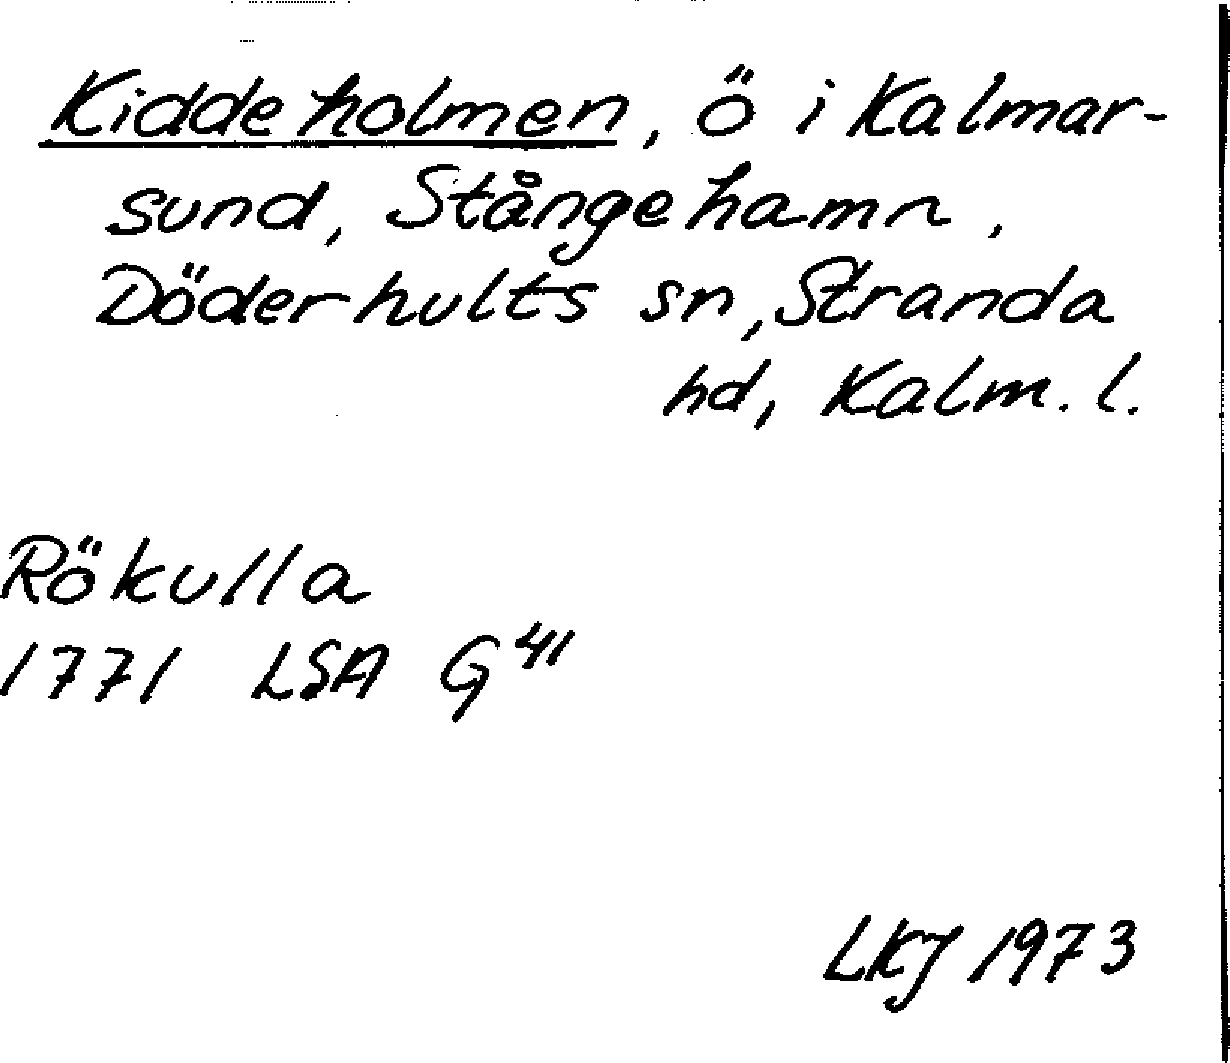 Kiddeholmen, ö i Kalmar-
sund, Stångehamn,
Döderhults sn, Stranda
hd, Kalm. l.
Rökulla
1771 LSA G 41
LKJ 1973